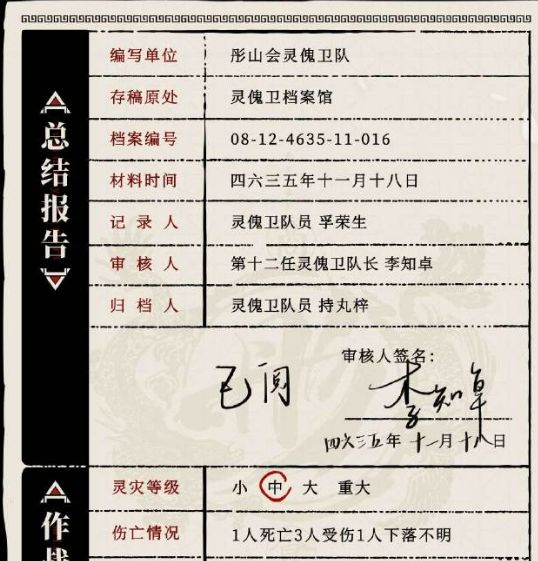 总结报告
编写单位 彤山会灵傀卫队
存稿原处 灵傀卫档案馆
档案编号 08-12-4635-11-016
材料时间 四六三五年十一月十八日
记录人 灵傀卫队员 孚荣生
审核人 第十二任灵傀卫队长 李知卓
归档人 灵傀卫队员 持丸梓
审核人签名:
已阅 李知卓
四六三五年十一月十八日
灵灾等级 小 中 大 重大
伤亡情况 1人死亡3人受伤1人下落不明
作